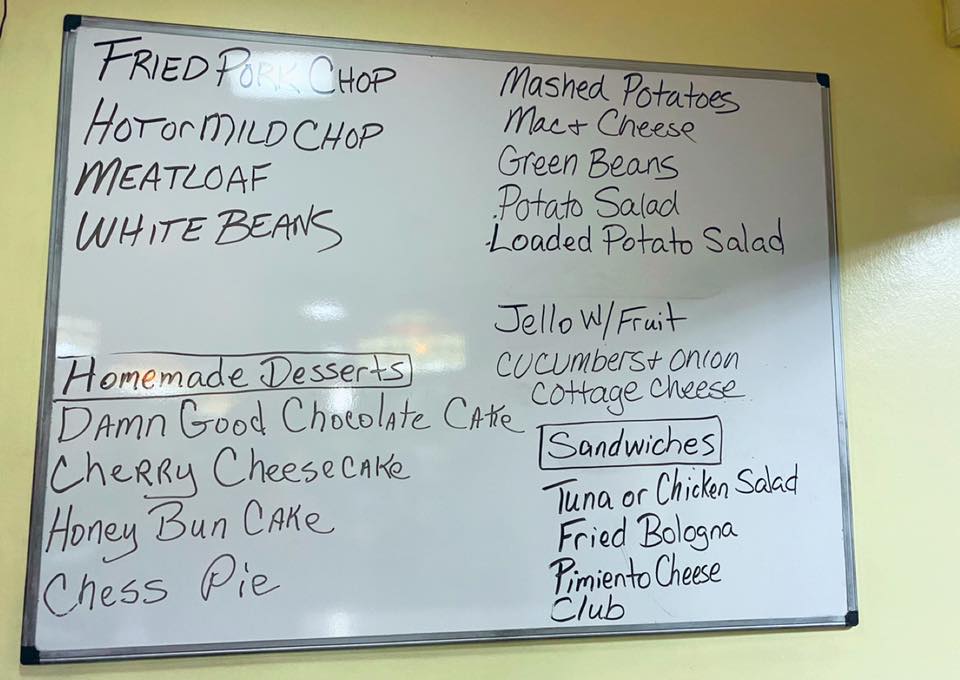 FRIED PORK CHOP
HOT or MILD CHOP
MEATLOAF
WHITE BEANS
Homemade Desserts
DAMN Good ChocolATe CAKe
CheRRy CheeseCAKe
Honey Bun CAKe
Chess Pie
Mashed Potatoes
Mac + Cheese
Green Beans
Potato Salad
Loaded Potato Salad
Jello W/Fruit
CUCUMBERS + ONION
Cottage Cheese
Sandwiches
Tuna or Chicken Salad
Fried Bologna
Pimiento Cheese
Club